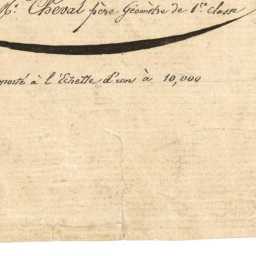 Mr. Cheval père Géomètre de 1re classe
à l'Echelle d'un à 10,000